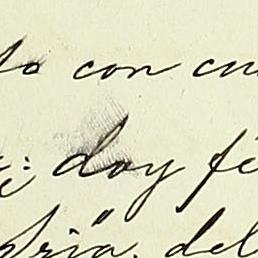 to con cu
doy fé
dria. del